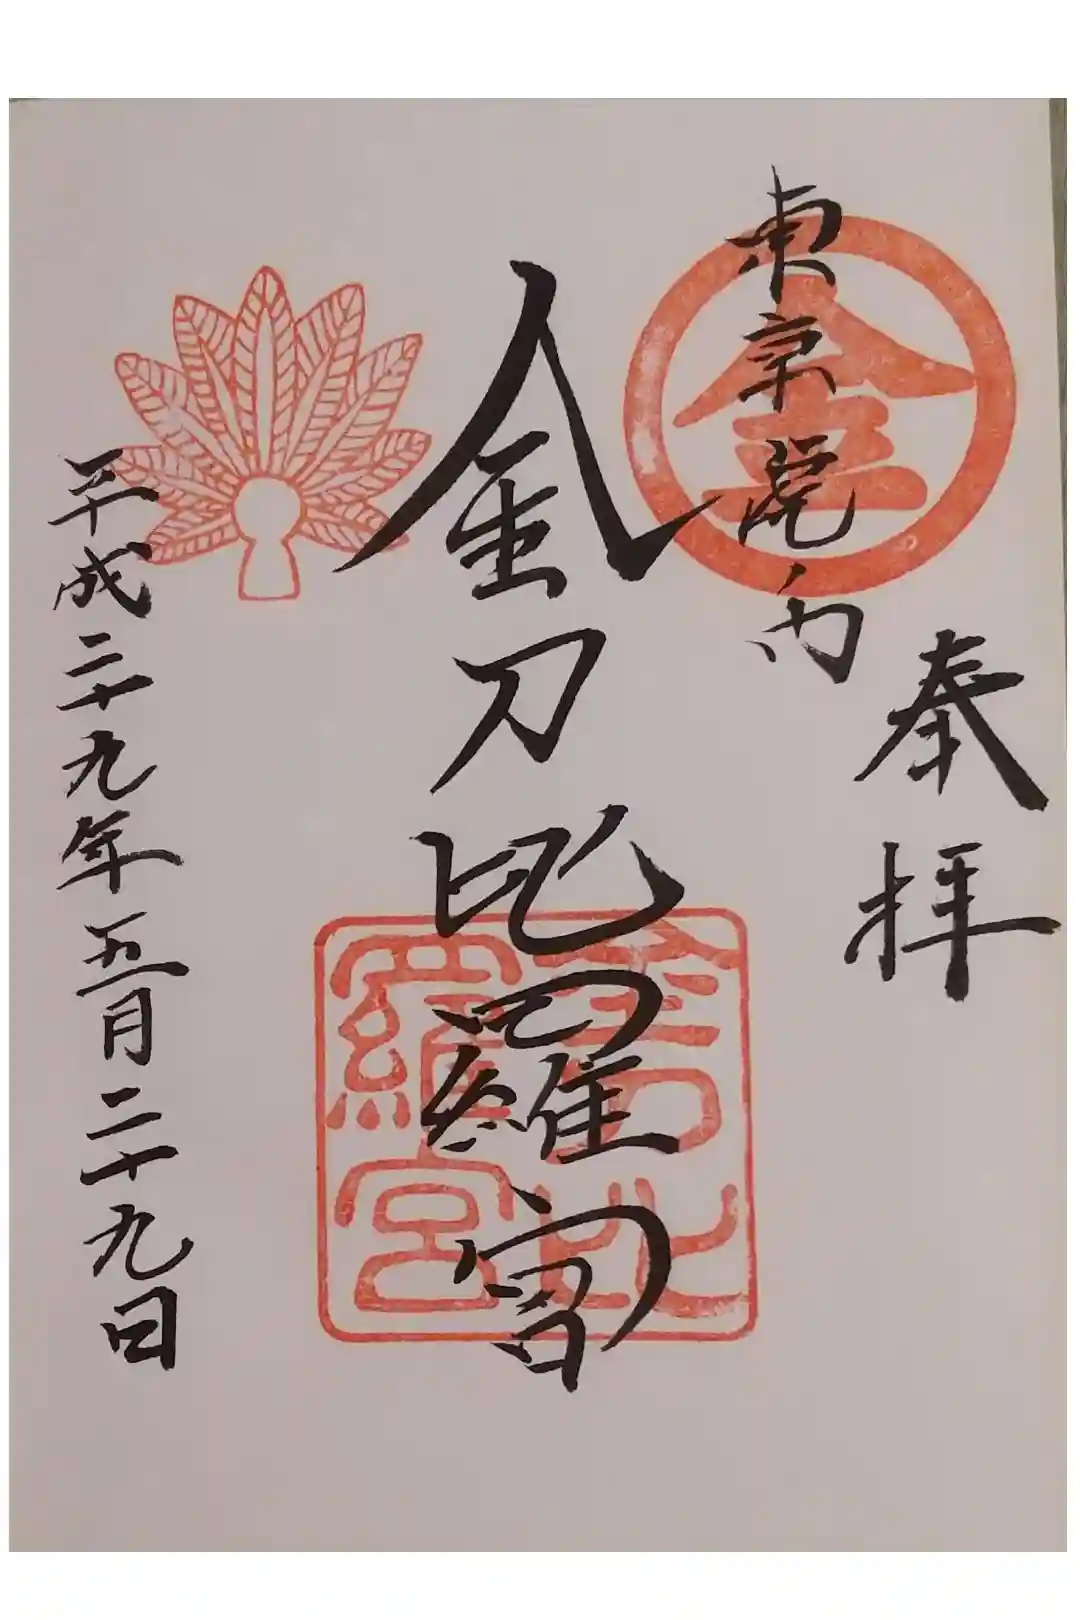 奉拝
東京虎ノ門
金
金刀比羅宮
金刀比羅宮
平成二十九年五月二十九日